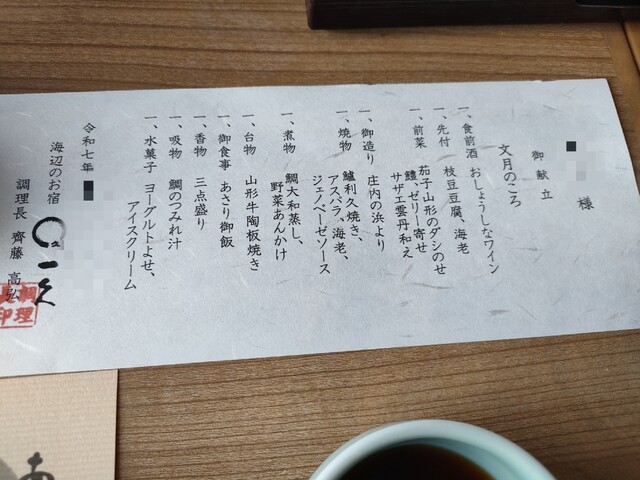 様
御献立
文月のころ
一、食前酒 おしょうしなワイン
一、先付 枝豆豆腐、海老
一、前菜 茄子山形のダシのせ
鱧、ゼリー寄せ
サザエ雲丹和え
一、御造り 庄内の浜より
一、焼物 鱸利久焼き、
アスパラ、海老、
ジェノベーゼソース
一、煮物 鯛大和蒸し、
野菜あんかけ
一、台物 山形牛陶板焼き
一、御食事 あさり御飯
一、香物 三点盛り
一、吸物 鯛のつみれ汁
一、水菓子 ヨーグルトよせ、
アイスクリーム
令和七年
海辺のお宿 一久
調理長 齊藤 高弘